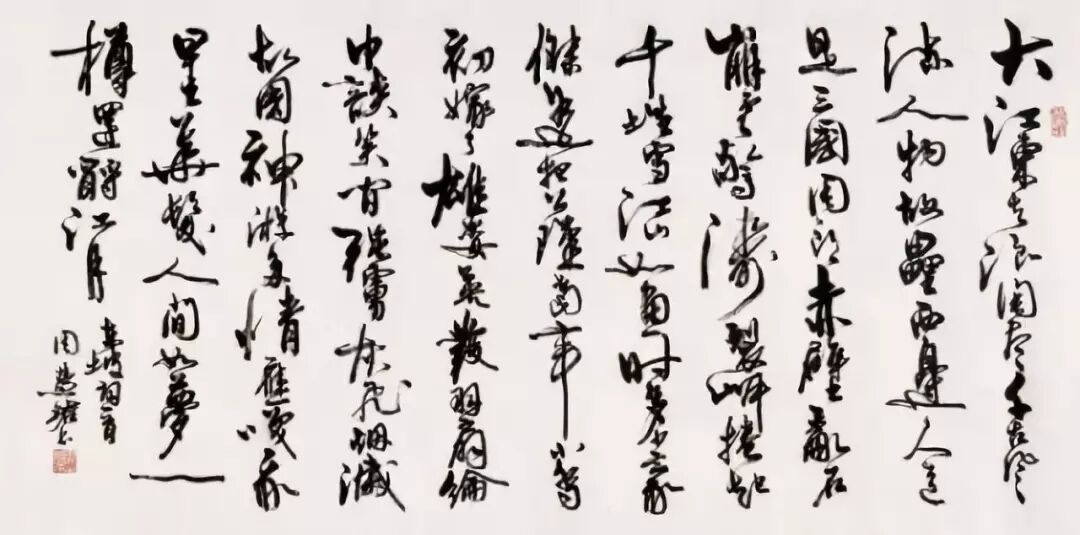 大江東去浪淘盡千古風
流人物故壘西邊人道
是三國周郎赤壁亂石
崩雲驚濤裂岸捲起
千堆雪江山如畫一時多少豪
傑遙想公瑾當年小喬
初嫁了雄姿英發羽扇綸
巾談笑間強虜灰飛烟滅
故國神游多情應笑我
早生華髮人間如夢一
樽還酹江月
東坡詞一首
周慧